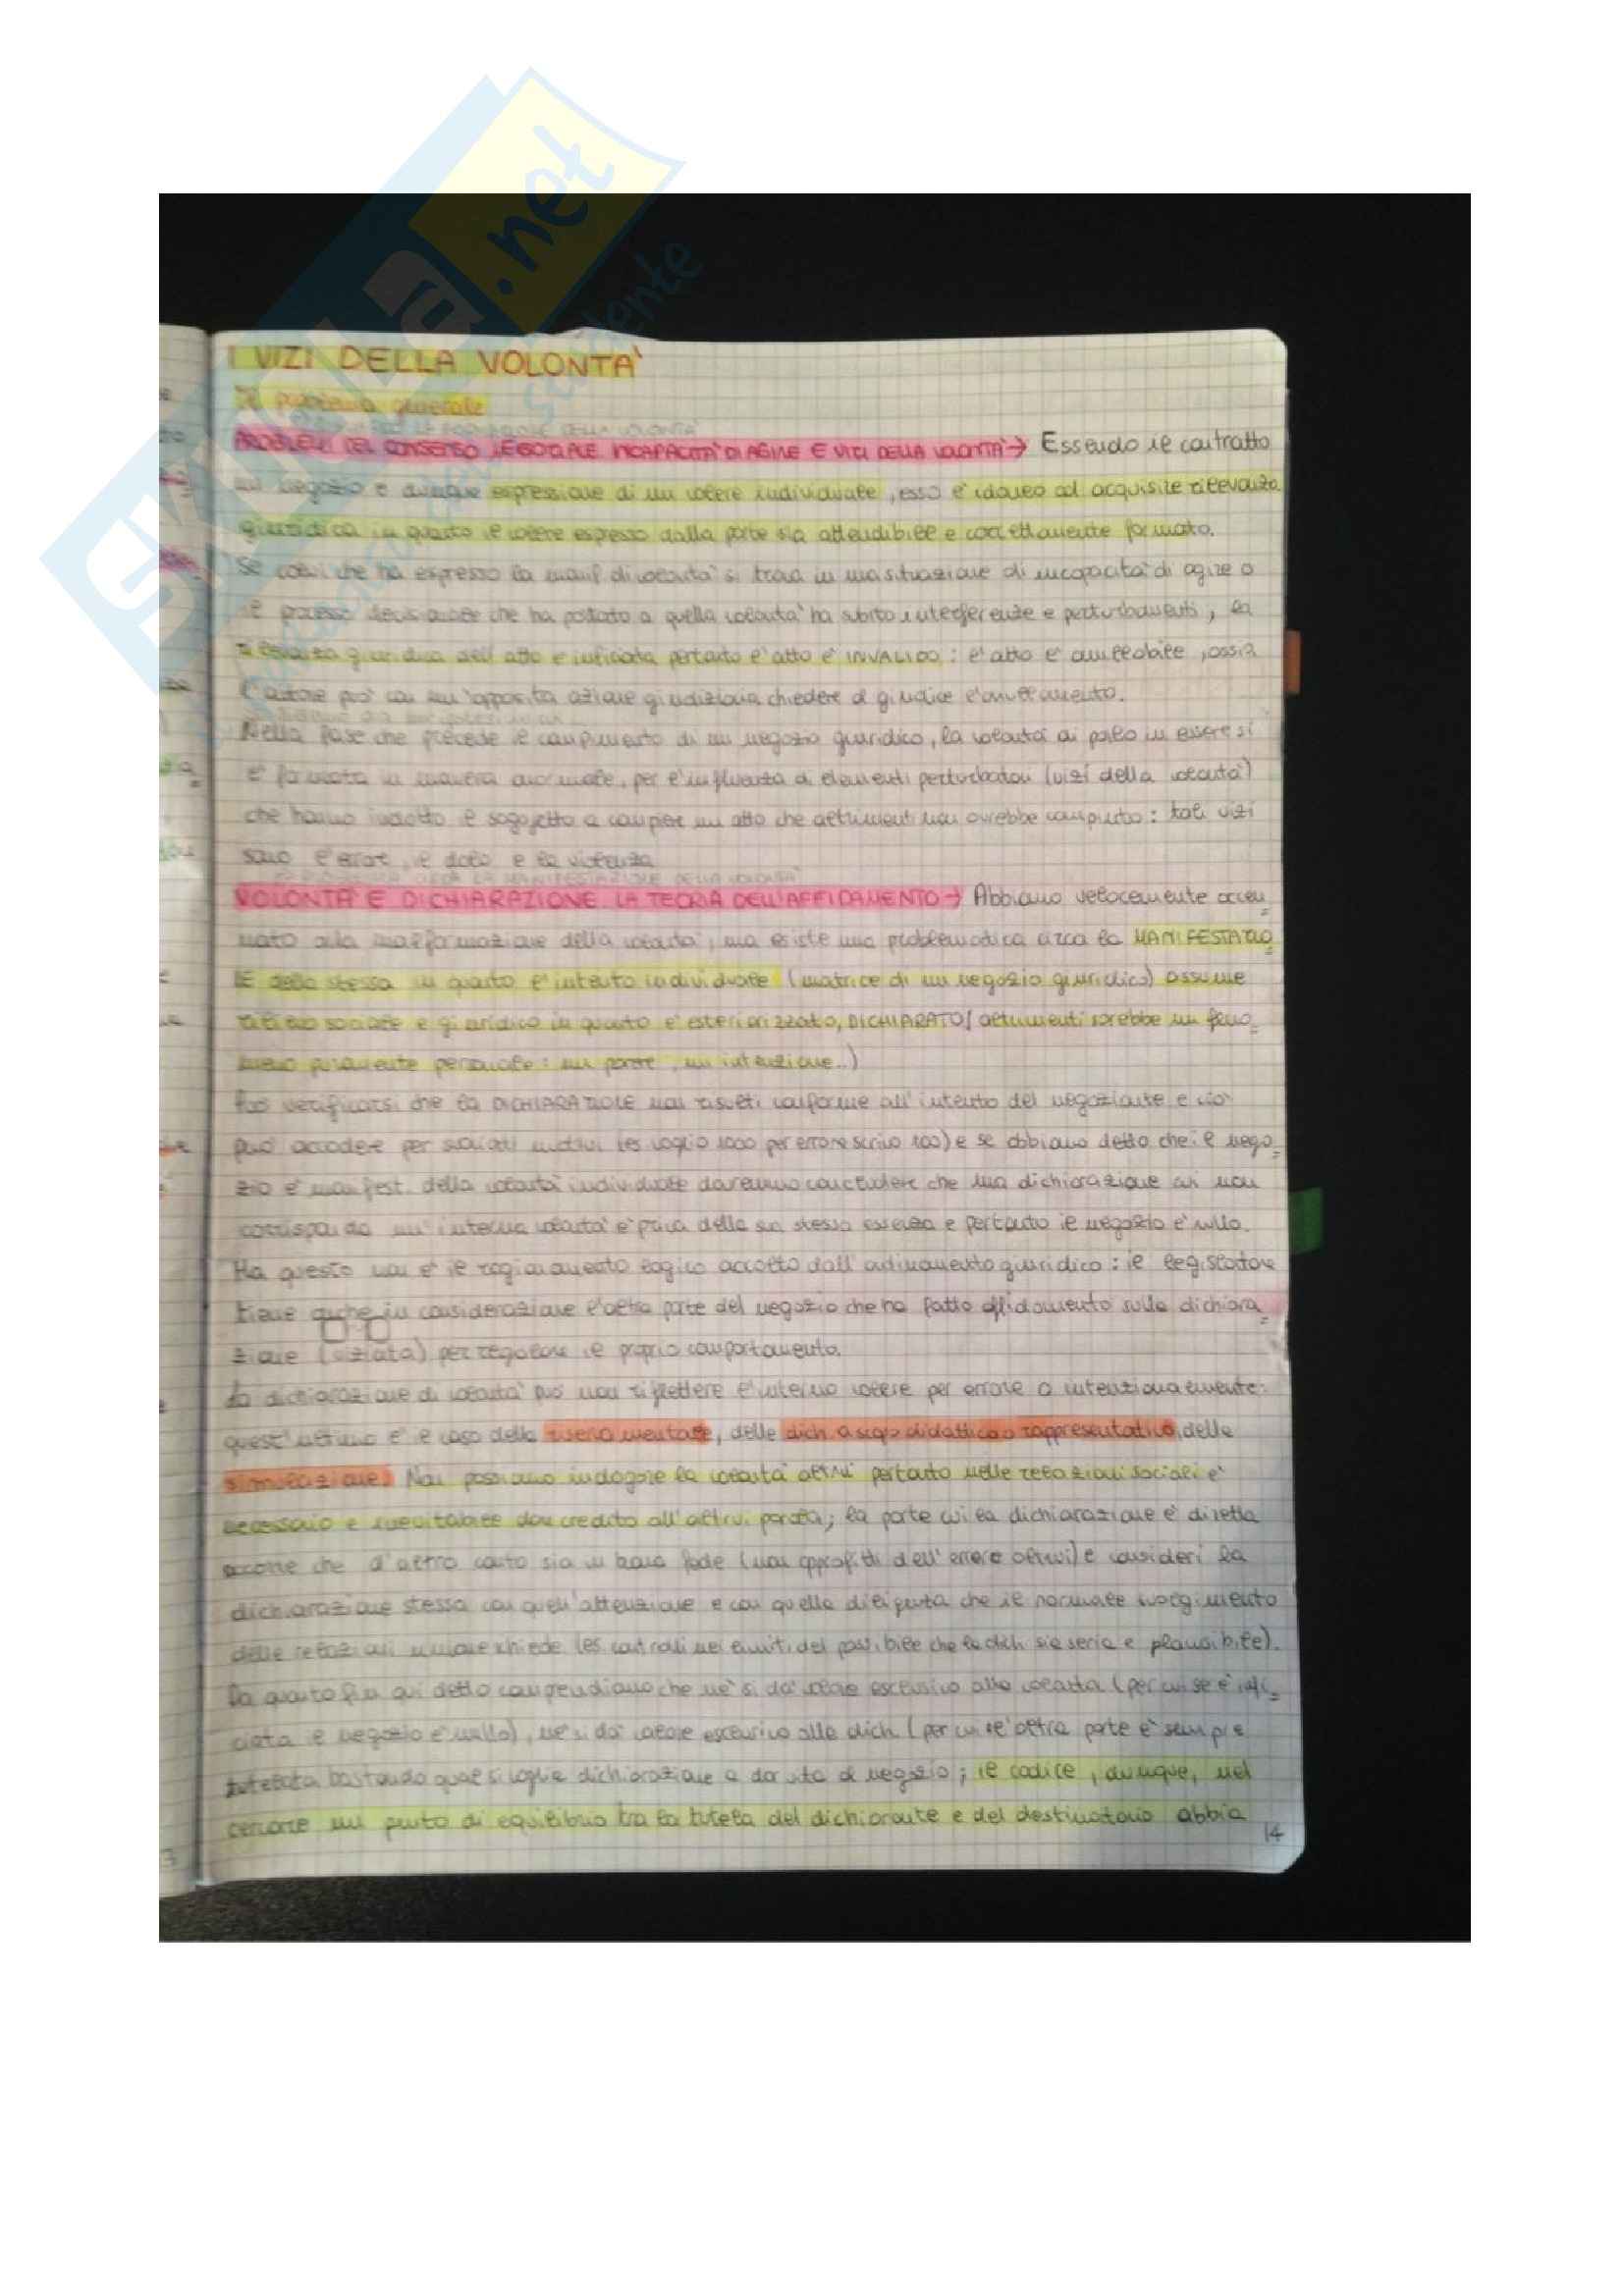 I VIZI DELLA VOLONTA'
Il problema generale
PROBLEMI DEL CONSENSO NEGOZIALE INCAPACITA' DI AGIRE E VIZI DELLA VOLONTA' → Essendo il contratto
un negozio e dunque espressione di un volere individuale, esso è idoneo ad acquisire rilevanza
giuridica in quanto il volere espresso dalla parte sia attendibile e correttamente formato.
Se colui che ha espresso la manif di volontà si trova in una situazione di incapacità di agire o
il processo decisionale che ha portato a quella volontà ha subito interferenze e perturbamenti, la
rilevanza giuridica dell'atto è inficiata pertanto l'atto è INVALIDO: l'atto è annullabile, ossia
l'autore può con un'apposita azione giudiziaria chiedere al giudice l'annullamento.
Nella fase che precede il compimento di un negozio giuridico, la volontà di porlo in essere si
è formata in maniera anormale, per l'influenza di elementi perturbatori (vizi della volontà)
che hanno indotto il soggetto a compiere un atto che altrimenti non avrebbe compiuto: tali vizi
sono l'errore, il dolo e la violenza
VOLONTA' E DICHIARAZIONE. LA TEORIA DELL'AFFIDAMENTO → Abbiamo velocemente accen
nato alla malformazione della volontà, ma esiste una problematica circa la MANIFESTAZIO
NE della stessa in quanto l'intento individuale (matrice di un negozio giuridico) assume
rilievo sociale e giuridico in quanto è esteriorizzato, DICHIARATO (altrimenti sarebbe un feno
meno puramente personale: un parere, un intenzione..)
Può verificarsi che la DICHIARAZIONE non risulti conforme all'intento del negoziante e ciò
può accadere per svariati motivi (es voglio 1000 per errore scrivo 100) e se abbiamo detto che il nego
zio è manifest. della volontà individuale dovremmo concludere che una dichiarazione cui non
corrisponda un'interna volontà è priva della sua stessa essenza e pertanto il negozio è nullo.
Ma questo non è il ragionamento logico accolto dall'ordinamento giuridico: il legislatore
tiene anche in considerazione l'altra parte del negozio che ha fatto affidamento sulla dichiara
zione (viziata) per regolare il proprio comportamento.
La dichiarazione di volontà può non riflettere l'interno volere per errore o intenzionalmente:
quest'ultimo è il caso della riserva mentale, delle dich. a scopo didattico o rappresentativo, della
simulazione. Non possiamo indagare la volontà altrui pertanto nelle relazioni sociali è
necessario e inevitabile dare credito all'altrui parola; la parte cui la dichiarazione è diretta
occorre che d'altro canto sia in buona fede (non approfitti dell'errore altrui) e consideri la
dichiarazione stessa con quell'attenzione e con quella diligenza che il normale svolgimento
delle relazioni umane richiede (es controlli nei limiti del possibile che la dich sia seria e plausibile).
Da quanto fin qui detto comprendiamo che nè si dà valore esclusivo alla volontà (per cui se è infi
ciata il negozio è nullo), nè si dà valore esclusivo alla dich (per cui l'altra parte è sempre
tutelata bastando qualsivoglia dichiarazione a dar vita al negozio; il codice, dunque, nel
cercare un punto di equilibrio tra la tutela del dichiarante e del destinatario abbia
14